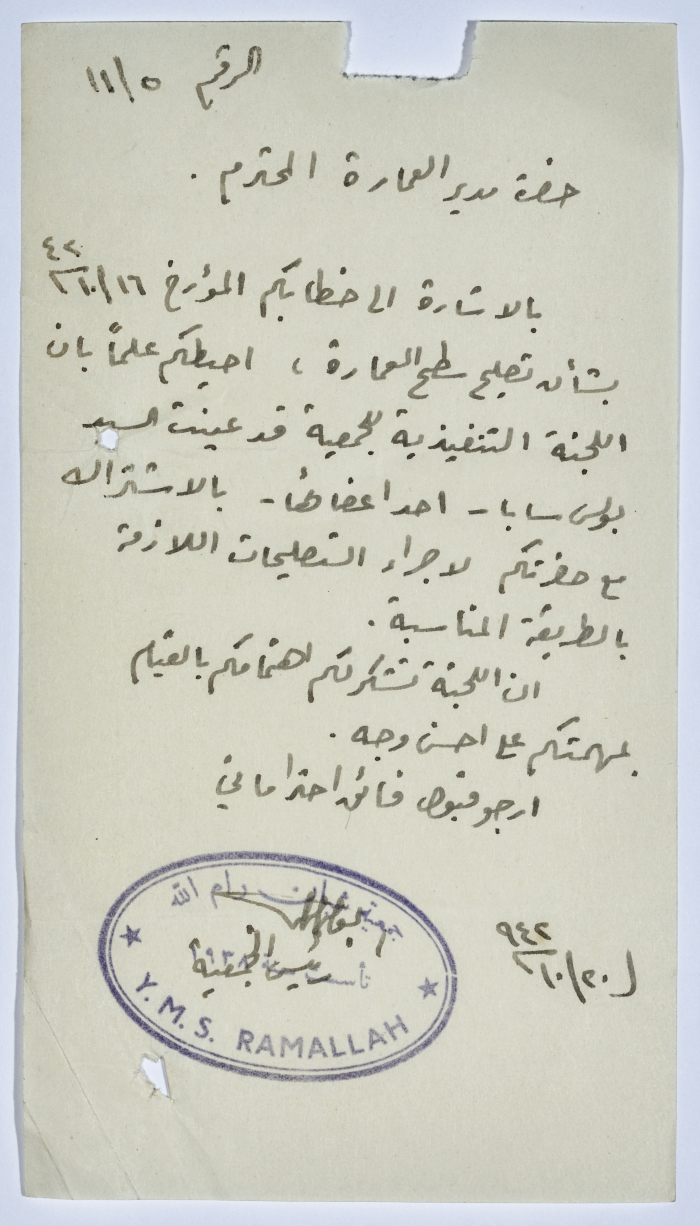 الرقم ١١/٥
حضرة مدير العمارة المحترم .
بالاشارة الى خطابكم المؤرخ ١٦/١٠/٤٢
بشأن تصليح سطح العمارة ، احيطكم علماً بان
اللجنة التنفيذية للجمعية قد عينت السيد
بولس سابا - احد اعضائها - بالاشتراك
مع حضرتكم لاجراء التصليحات اللازمة
بالطريقة المناسبة .
ان اللجنة تشكر لكم اهتمامكم بالقيام
بمهمتكم على احسن وجه .
ارجو قبول فائق احتراماتي
جمعية شبان رام الله
رئيس الجمعية
تأسست
Y. M. S. RAMALLAH
٢٠/١٠/٩٤٢